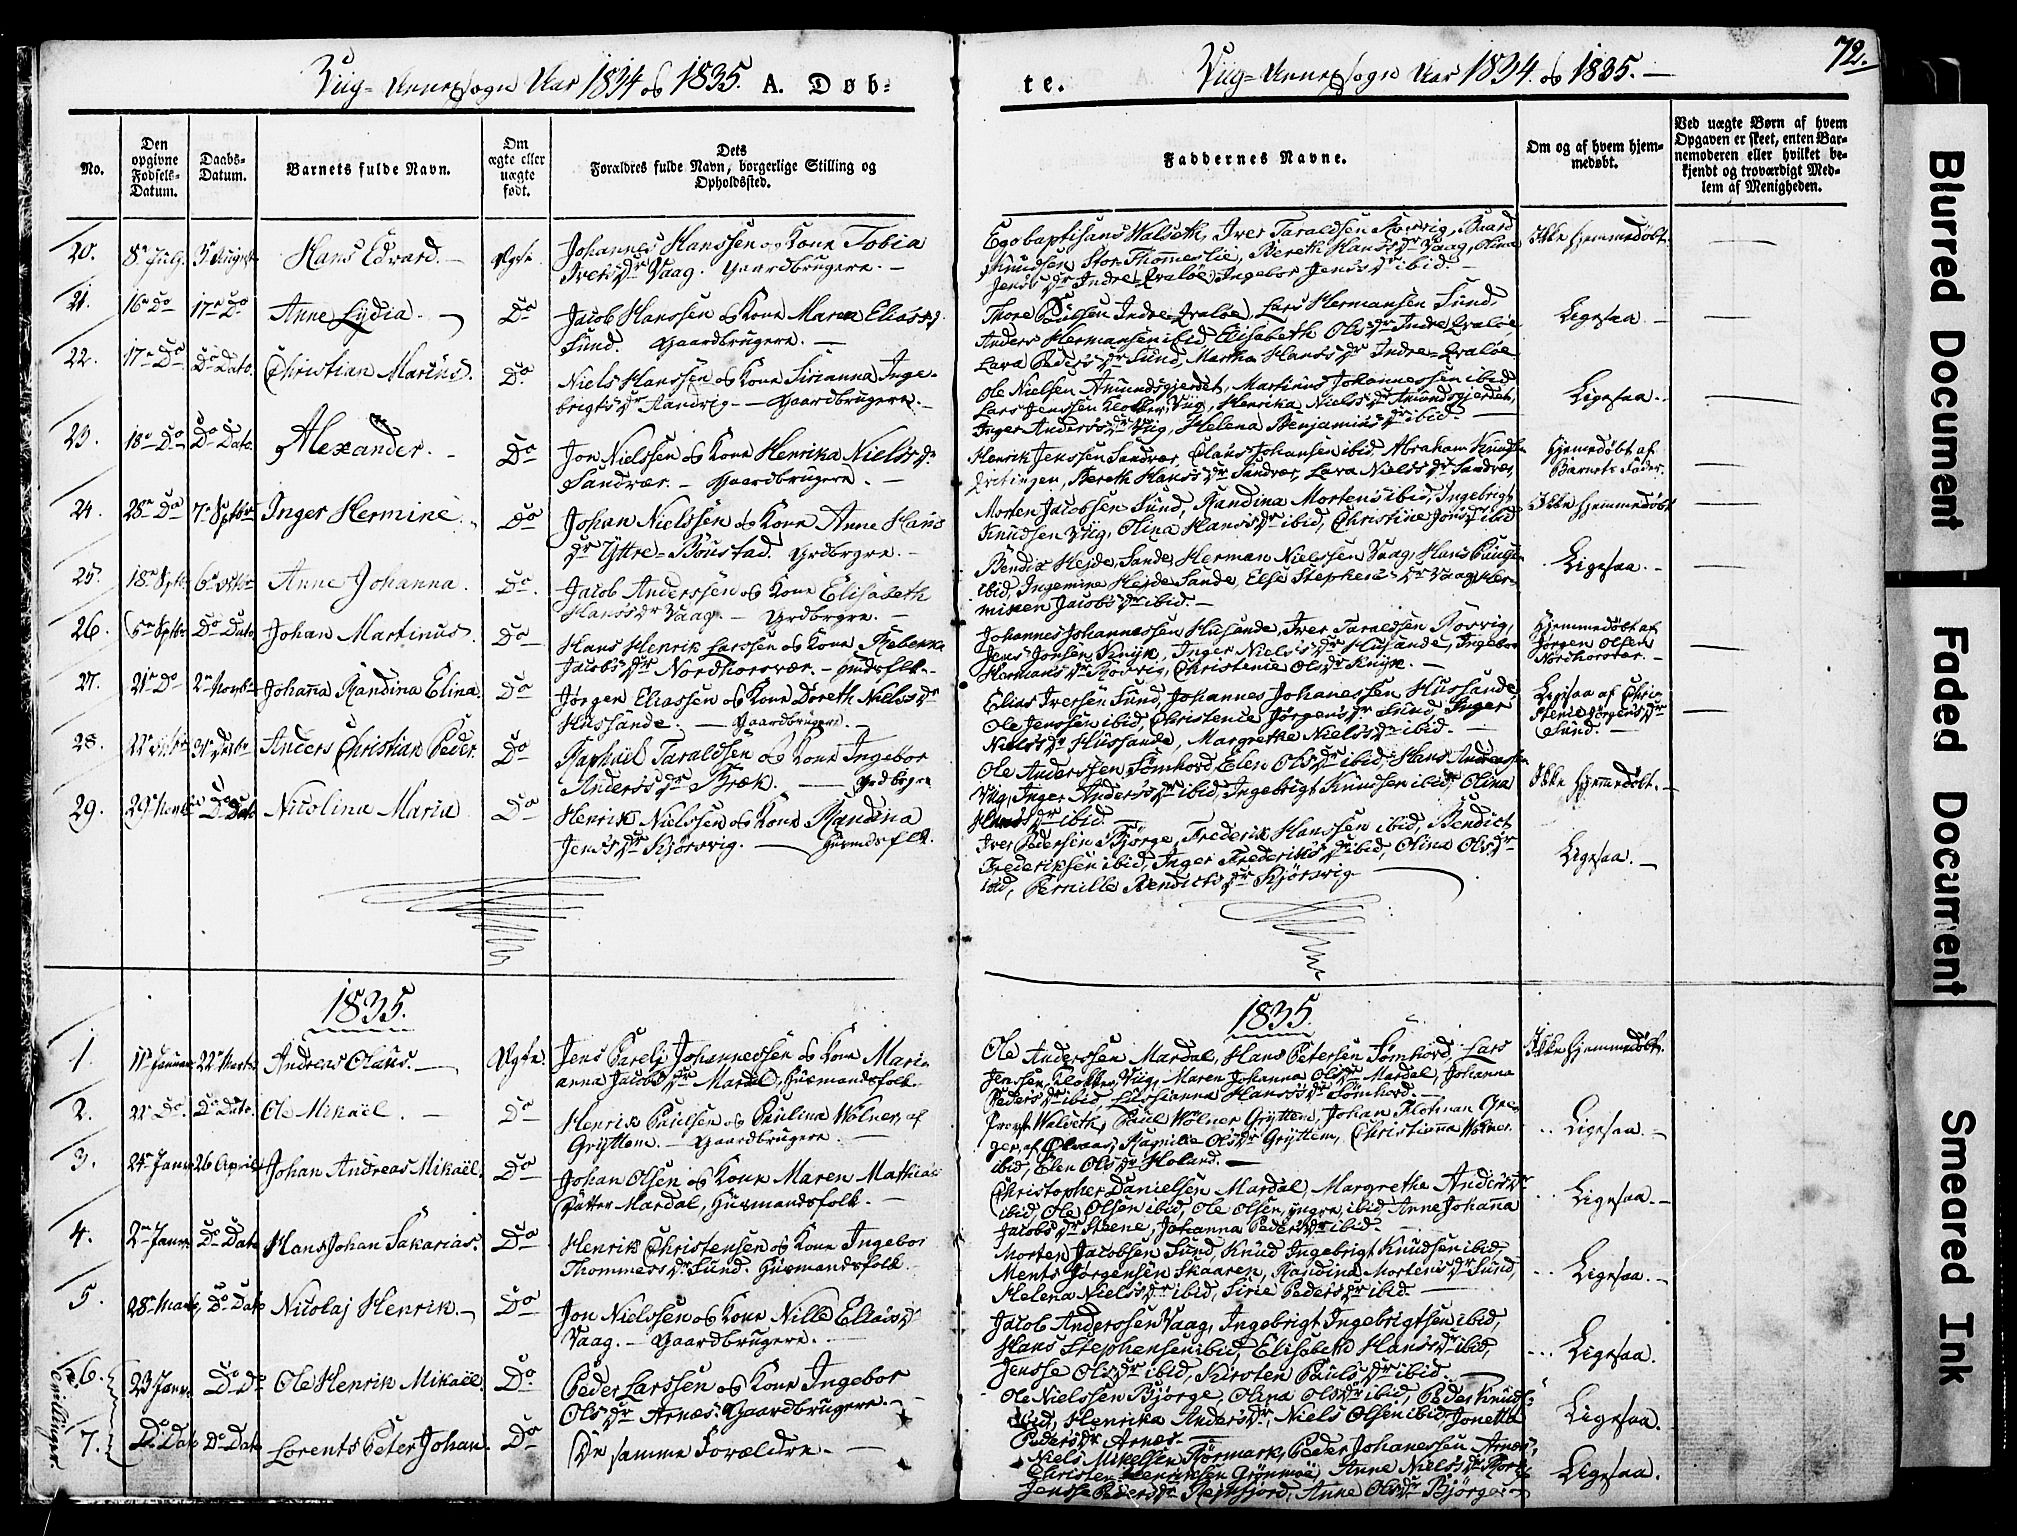 Viig-Annexsogn Aar 1834 og 1835. A. Døb-
te. Viig-Annexsogn Aar 1834. og 1835. 72.
No.
Den opgivne Fødsels-Datum.
Daabs-Datum.
Barnets fulde Navn.
Om ægte eller uægte født.
Dets Forældres fulde Navn, borgerlige Stilling og Opholdssted.
Faddernes Navne.
Om og af hvem hjem-medøbt.
Ved uægte Børn af hvem Opgaven er skeet, enten Bar-nemoderen eller hvilket be-kjendt og troværdigt Med-lem af Menigheden.
20. 8de July. 3die August Hans Edvard. Ægte. Johannes Hanssen og Kone Tobia
Vaag. Gaardbrugere.
Egobaptisans Walseth, Iver Taraldsen Rørvig, Baard
Knudsen Stor-Thomeslie, Bereth Hansdr Vaag, Olina
Jensdr Indre-Qvaløe, Ingebor Jensdr ibid.
Ikke hjemmedøbt.
21. 16de Do 17de Do Anne Lydia. Do Jacob Hanssen og Kone Maren Eliasd
Sund. Gaardbrugere.
Thore Paulsen Indre Qvaløe, Lars Hermansen Sund,
Anders Hermansen ibid, Elisabeth Olsdr Indre Qvaløe
Lava Pedersdr Sund, Martha Hansdr Indre-Qvaløe
Ligesaa.
22. 17de Do Do Dato Christian Marius. Do Niels Hanssen og Kone Sirianna Inge-
brigtsdr Sandvig. Gaardbrugere.
Ole Nielsen Amundsgjerdet, Martinus Johannessen ibid
Lars Jenssen Klokker, Viig, Henrika Nielsdr Amundsgjerdet,
Inger Andersdr Viig, Helena Benjaminsdr ibid.
Ligesaa.
23. 18de Do Do Dato Alexander. Do Jon Nielssen og Kone Henrika Nielsdr
Sandvær. Gaardbrugere.
Henrik Jenssen Sandvær, Claus Johansen ibid, Abraham Knudsen
Qvitingen, Bereth Hansdr Sandvær, Lava Nielsdr Sandvær,
Hjemmedøbt af
Barnets Fader.
24. 28de Do 7de Septbr Inger Hermine. Do Johan Nielssen og Kone Anne Hans
dr Yttre-Bønstad. Grdbrgre.
Morten Jacobsen Sund, Randina Mortens ibid, Ingebrigt
Knudsen Viig, Olina Hansdr ibid, Christine Jonsd ibid
Ikke hjemmedøbt
25. 18de Septbr 6te Octbr Anne Johanna. Do. Jacob Anderssen og Kone Elisabeth
Hansdr Vaag. Grdbrgre.
Bendix Hejde, Sande, Herman Nielssen Vaag, Hans
ibid, Ingemine Hejde Sande, Else Stephensdr Vaag, Her-
minen Jacobsdr ibid.
Ligesaa.
26. 5te Septbr Do Dato Johan Martinus. Do Hans Henrik Larssen og Kone Rebekka
Jacobsdr Nordhorsvær.
Johannes Johannessen Husande, Iver Taraldsen Rørvig,
Jens Jonsen, Inger Nielsdr Husande, Ingebor
Hermansdr Rørvig, Christenie Olsdr
Hjemmedøbt af
Jørgen Olsen
Nordhorsvær.
27. 21de Do 2den Novbr Johana Randina Elina. Do Jørgen Eliassen og Kone Doreth Nielsdr
Hussande. Gaardbrugere.
Elias Iverssen Sund, Johannes Johanessen Hussande,
Ole Jenssen ibid, Christence Jørgensdr Sund, Inger
Nielsdr Hussande, Margrethe Nielsdr ibid.
Ligesaa af Chri-
stence Jørgensdr
Sund.
28. Anders Christian Peder. Do Raphael Taraldsen og Kone Ingebor
Andersdr Bræk. Grdbrgre
Ole Anderssen Sømhord, Elen Olsdr ibid, Hans Andreassen
Viig, Inger Andersdr ibid, Ingebrigt Knudsen ibid, Olina
Hansdr ibid.
Ikke hjemmedøbt.
29. 29de Novbr Do Dato Nicolina Maria Do Henrik Nielssen og Kone Randina
Jensdr Kjørsvig. Husmdsflk.
Iver Pedersen Bjørge, Frederik Hanssen ibid, Bendict
Frederiksen ibid, Inger Frederiksdr ibid, Olina Olsdr
ibid, Pernille Bendictsdr Kjørsvig
Ligesaa.
1835. 1835.
1. 11te Januar 22de Marts Andreas Olaus. Ægte. Jens Parelj Johannessen og Kone Mari-
anna Jacobsdr Mardal, Husmandsfolk.
Ole Anderssen Mardal, Hans Petersen Sømhord, Lars
Jenssen, Klokker, Viig, Maren Johanna Olsdr Mardal, Johanna
Pedersdr ibid, Lussianna Hansdr Sømhord.
Ikke hjemmedøbt.
2. 22de Do. Do Dato. Ole Mikael. Do Henrik Paulsen og Paulina Wølner, af
Gryttem. Gaardbrugere.
Provst Walseth, Paul Wølner Gryttem, Johan Flotman
Ragnilie Olsdr Gryttem, Christianna Wølner
ibid, Elen Olsdr Holand.
Ligesaa.
3. 24de Janr 26 April Johan Andreas Mikael. Do Johan Olsen og Kone Maren Mathias
Datter Mardal, Husmandsfolk.
Christopher Danielsen Mardal, Margrethe Andersdr
ibid, Ole Olsen ibid, Ole Olsen, yngre, ibid, Anne Johana
Jacobsdr Steene, Johanna Pedersdr ibid.
Ligesaa.
4. 2den Janr. Do Dato Hans Johan Sakarias. Do Henrik Christensen og Kone Ingebor
Thommesdr Sund. Husmandsfolk.
Morten Jacobsen Sund, Knud Ingebrigt Knudsen ibid,
Ments Jørgensen Skaaren, Randina Mortensdr Sund,
Helena Nielsdr ibid, Sirie Pedersdr ibid.
Ligesaa.
5. 28de Marts, Do Dato Nicolaj Henrik. Do Jon Nielssen og Kone Nille Eliasd
Vaag. Gaardbrugere.
Jacob Anderssen Vaag, Ingebrigt Ingebrigtsen ibid,
Hans Stephensen ibid, Elisabeth Hansdr ibid,
Jensse Olsdr ibid, Kirsten Paulsdr ibid.
Ligesaa.
6. 23 Janr. Do Do Ole Henrik Mikael. Do Peder Larssen og Kone Ingebor
Olsdr Arnæs. Gaardbrugere.
Ole Nielssen Bjørge, Olina Olsdr ibid, Peder Knuds-
ibid, Henrika Andersdr, Niels Olsen ibid, Jonetta
Pedersdr Arnæs.
Ligesaa.
Tvillinger.
7. Do Dato Do Dato Lorents Peter Johan. Do De samme Forældre
Niels Mikelsen Rørmark, Peder Johanessen Arnæs,
Christen Henriksen Grønmøe, Anne Nielsdr
Jensse Pedersdr, Anne Olsdr Bjørge
Ligesaa.
Blurred Document
Faded Document
Smeared Ink